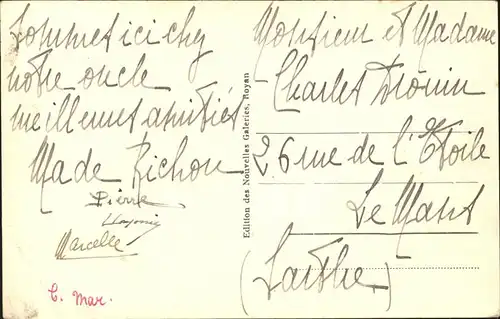 Sommes ici chez
notre oncle
meilleures amitiés
Made Bichon
Pierre
Marcelle
C. Mar.
Edition des Nouvelles Galeries, Royan
Monsieur et Madame
Charles Drouin
26 rue de l'Etoile
Le Mans
(Sarthe)